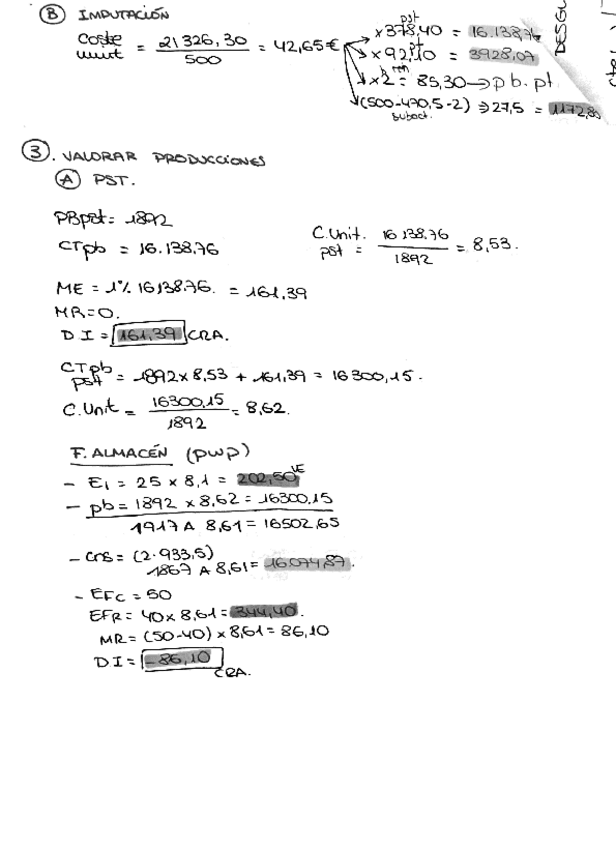 B IMPUTACIÓN
coste unit = 21326,30 / 500 = 42,65€
pst
x 378,40 = 16.138,76
pt
x 92,10 = 3928,07
x 2 = 85,30 → pb. pt
(500-470,5-2) ⇒ 27,5 = 1172,88
subact.
DESGL
3. VALORAR PRODUCCIONES
A PST.
PBpst = 1892
CTpb = 16.138,76
C.Unit. pst = 16138.76 / 1892 = 8,53.
ME = 1% 16138.76. = 161,39
MR = 0.
DI = 161,39 CRA.
CTpb pst = 1892 x 8,53 + 161,39 = 16300,15.
C.Unit = 16300,15 / 1892 = 8,62.
F. ALMACÉN (pwp)
- Ei = 25 x 8,1 = 202,50
- pb = 1892 x 8,62 = 16300,15
1917 A 8,61 = 16502,65
- Cns = (2·933,5)
1867 A 8,61 = 16.074,87.
- EFC = 50
EFR = 40 x 8,61 = 344,40.
MR = (50-40) x 8,61 = 86,10
DI = -86,10
CRA.